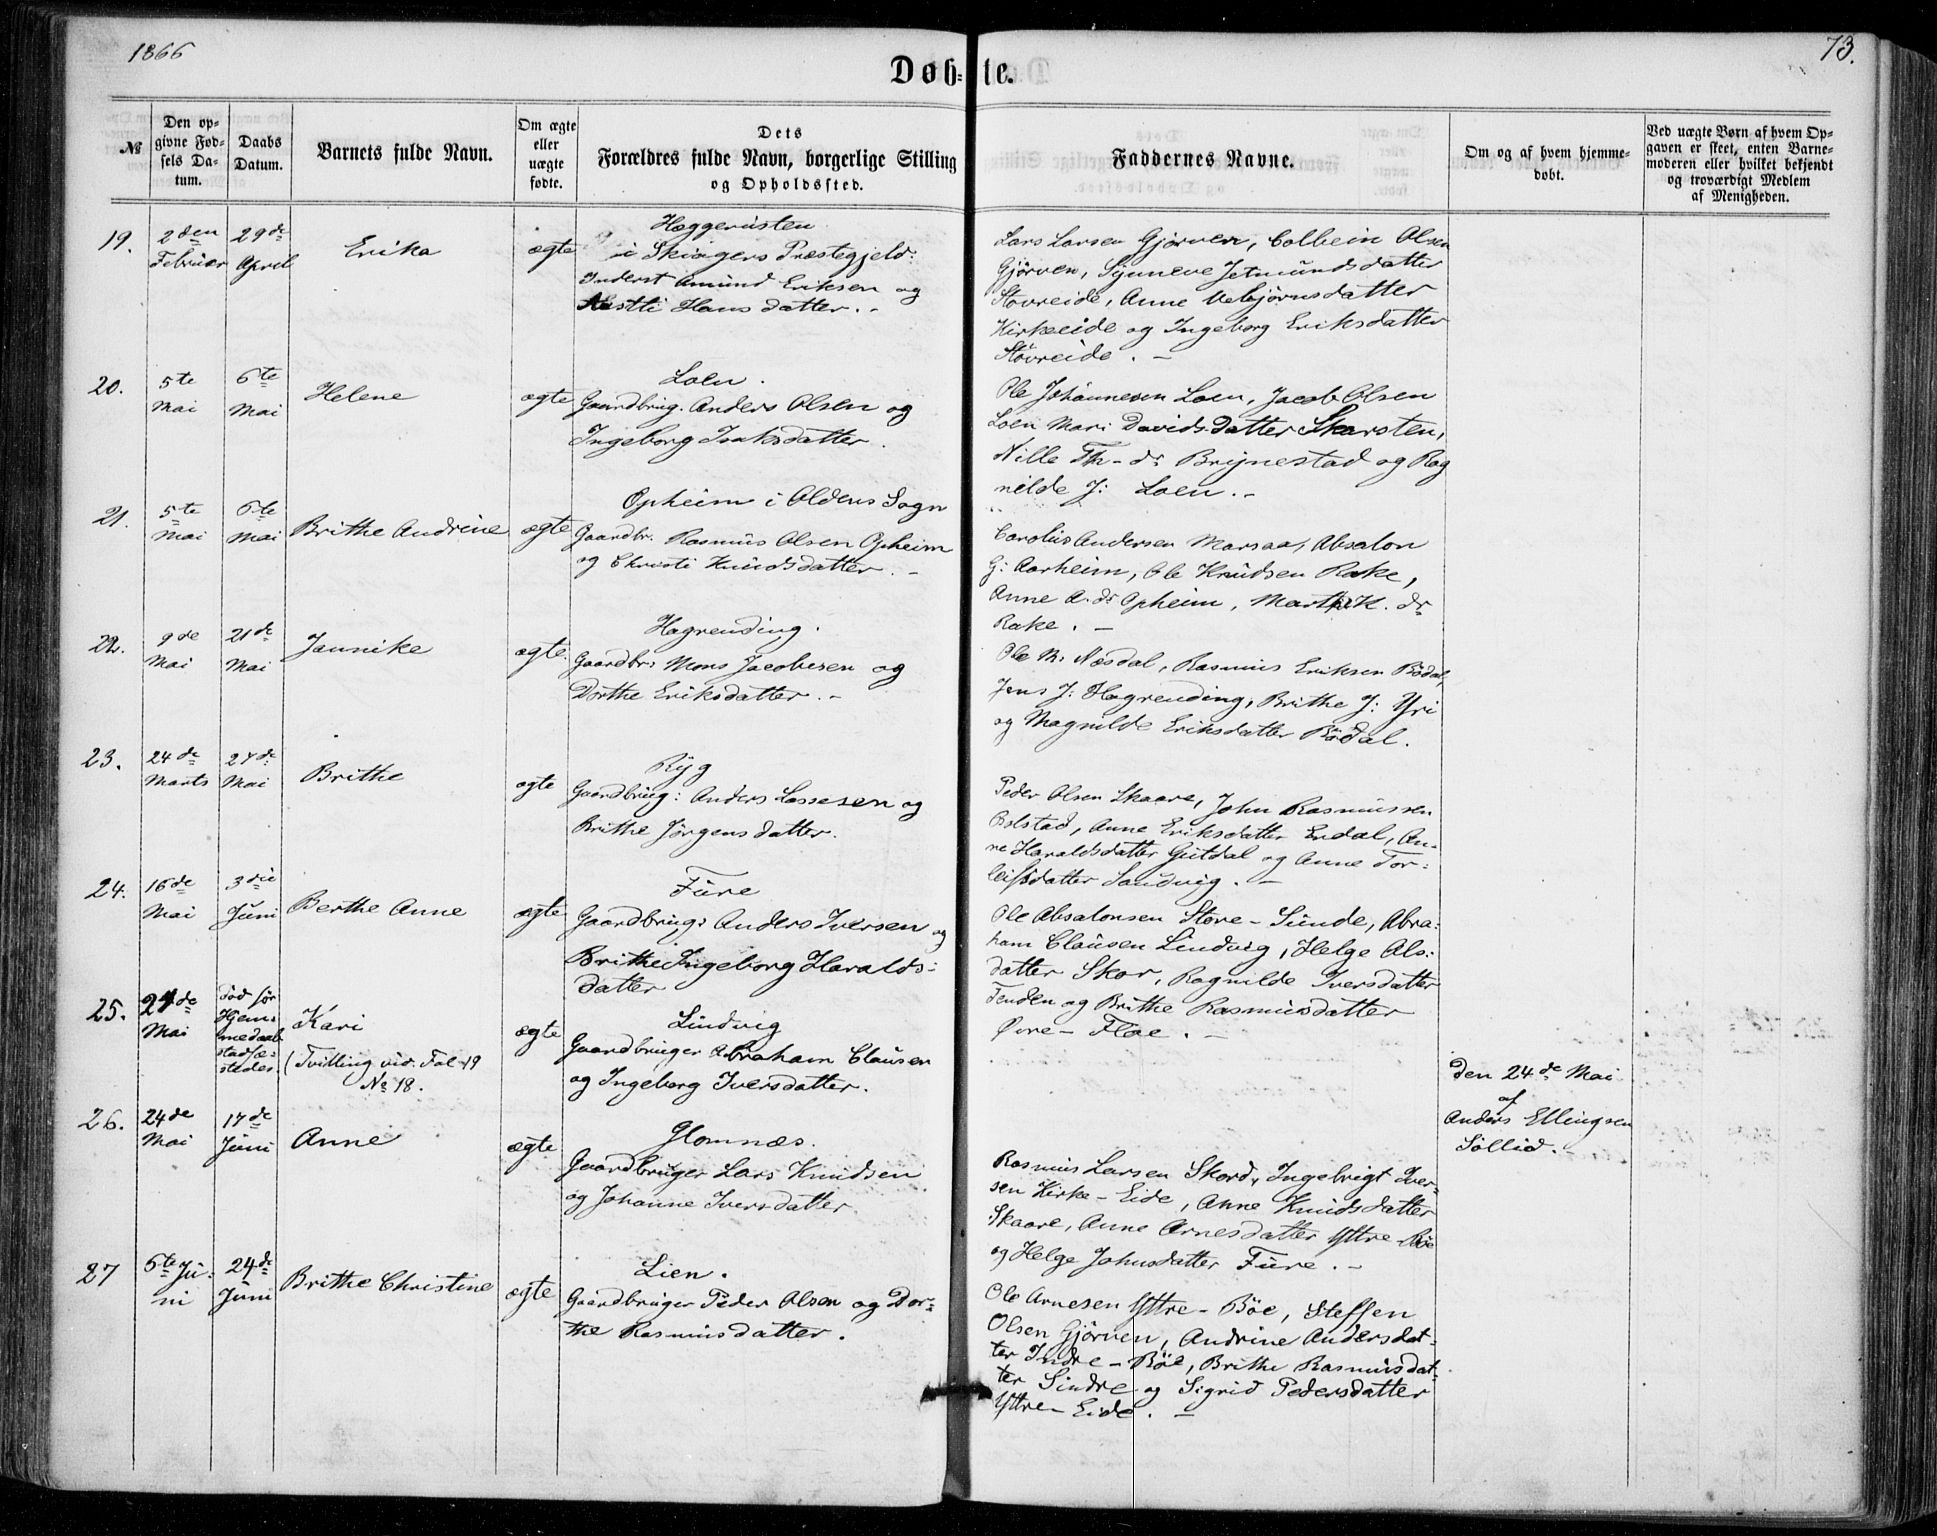 1866
73.
Døb-te.
№
Den op-
givne Fød-
sels Da-
tum.
Daabs
Datum.
Barnets fulde Navn.
Om ægte
eller
uægte
fødte.
Dets
Forældres fulde Navn, borgerlige Stilling
og Opholdssted.
Faddernes Navne.
Om og af hvem hjemme-
døbt.
Ved uægte Børn af hvem Op-
gaven er skeet, enten Barne-
moderen eller hvilket bekjendt
og troværdigt Medlem
af Menigheden.
19.
2den
Februar
29de
April
Erika
ægte
Heggerusten
i Skiagers Præstegjeld:
Inderst Amund Eriksen og
Hansdatter. -
Lars Larsen Gjørven, Colbein Olsen
Gjørven, Synneve Jetmundsdatter
Støvreide, Anne Vebjørnsdatter
Kirkeeide og Ingeborg Eriksdatter
Støvreide. -
20.
5te
Mai
6te
Mai
Helene
ægte
Loen.
Gaardbrug. Anders Olsen og
Ingeborg Isaksdatter.
Ole Johannesen Loen, Jacob Olsen
Loen Mari Davids-datter Skarsten,
Nille Th- dr Brynestad og Rag
nilde J: Loen. -
21.
5te
Mai
6te
Mai
Brithe Andrine
ægte
Opheim i Oldens Sogn
Gaardbr. Rasmus Olsen Opheim
og Christi Knudsdatter. -
Carolus Andersen Marsaa, Absalon
G: Aarheim, Ole Knudsen Rake,
Anne A. dr Opheim, Marthe K. dr
Rake. -
22.
9de
Mai
21de
Mai
Jannike
ægte.
Hagrending.
Gaardbr: Mons Jacobsen og
Dorthe Eriksdatter. -
Ole M: Næsdal, Rasmus Eriksen Bødal,
Jens J: Hagrending, Brithe J: Yri
og Magnilde Eriksdatter Bødal.
23.
24de
Marts
27de
Mai
Brithe
ægte
Ryg
Gaardbrug: Anders Lassesen og
Brithe Jørgensdatter.
Peder Olsen Skaare, John Rasmussen
Bolstad, Anne Eriksdatter Erdal, An-
ne Haraldsdatter Gutdal og Anne Tor-
leifsdatter Sandvig. -
24.
16de
Mai
3die
Juni
Berthe Anne
ægte
Fure
Gaardbrug: Anders Iversen og
Brithe Ingeborg Haralds-
datter
Ole Absalonsen Store-Sunde, Abra-
ham Clausen Lindvig, Helge Als:
datter Skor, Ragnilde Iversdatter
Tenden og Brithe Rasmusdatter
Øvre-Floe. -
25.
24de
Mai
Død før
Hjem-
medaab
stadfæ-
stedes.
Kari
(Tvilling vid. Fol 19
№ 18.
ægte
Lindvig
Gaardbruger Abraham Clausen
og Ingeborg Iversdatter.
Den 24de Mai
af
Anders Ellingsen
Sollid. -
26.
24de
Mai
17de
Juni
Anne
ægte
Glomnæs.
Gaardbruger Lars Knudsen
og Johanne Iversdatter
Rasmus Larsen Skord, Ingebrigt Iver-
sen Kirke-Eide, Anne Knudsdatter
Skaare, Anne Arnesdatter Yttre-Bøe
og Helge Johnsdatter Fure. -
27
5te Ju-
ni
24de
Juni
Brithe Christine
ægte
Lien.
Gaardbruger Peder Olsen og Dor-
the Rasmusdatter.
Ole Arnesen Yttre-Bøe, Steffen
Olsen Gjørven, Andrine Andersdat-
ter Indre-Bøe, Brithe Rasmusdat-
ter Sindre og Sigrid Pedersdatter
Yttre-Eide. -